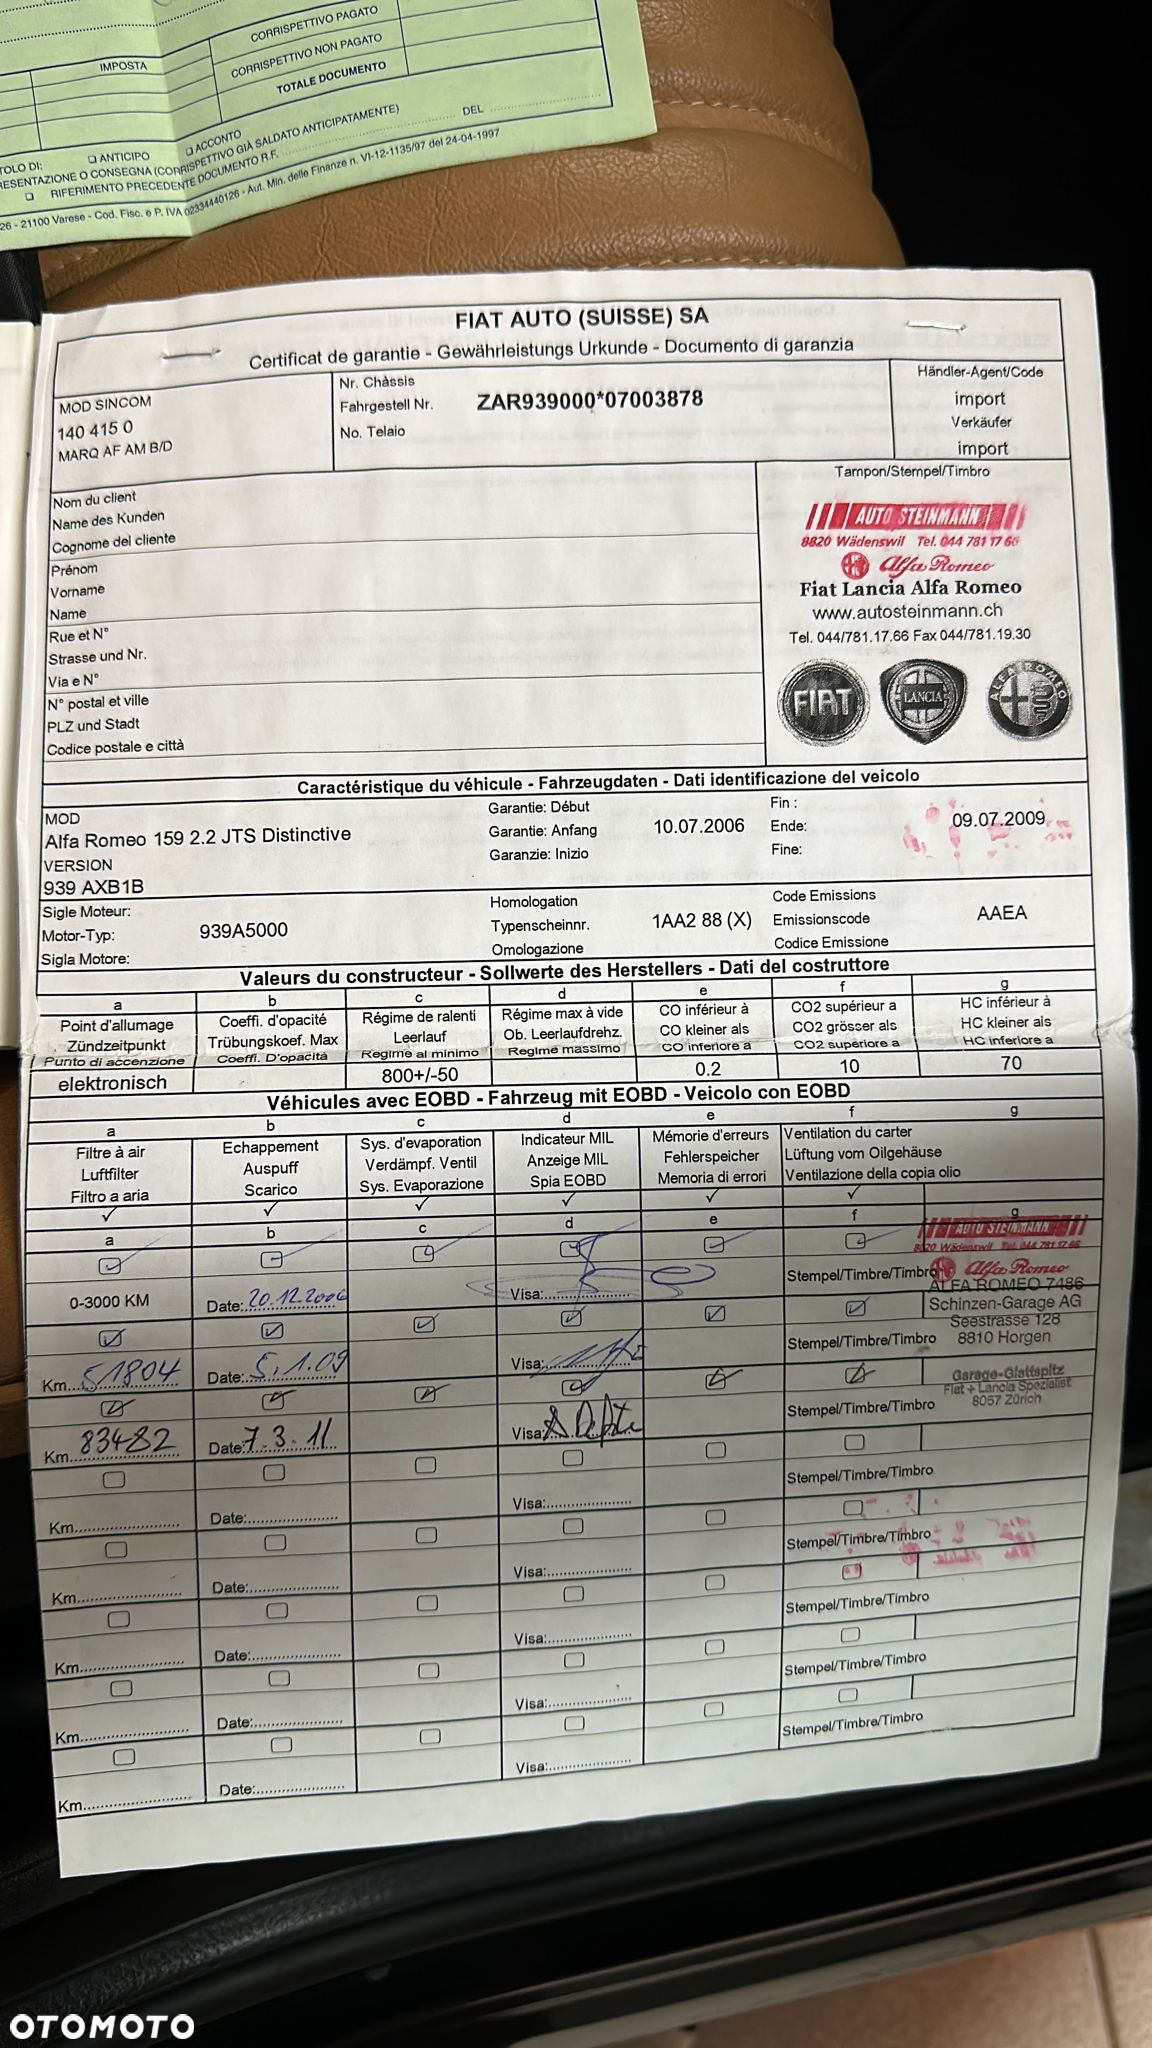 CORRISPETTIVO PAGATO
IMPOSTA
CORRISPETTIVO NON PAGATO
TOTALE DOCUMENTO
TOLO DI:
❑ ANTICIPO
❑ ACCONTO
DEL
RESENTAZIONE O CONSEGNA (CORRISPETTIVO GIÀ SALDATO ANTICIPATAMENTE)
❑ RIFERIMENTO PRECEDENTE DOCUMENTO R.F.
26 - 21100 Varese - Cod. Fisc. e P. IVA 02334440126 - Aut. Min. delle Finanze n. VI-12-1135/97 del 24-04-1997
FIAT AUTO (SUISSE) SA
Certificat de garantie - Gewährleistungs Urkunde - Documento di garanzia
MOD SINCOM
140 415 0
MARQ AF AM B/D
Nr. Châssis
Fahrgestell Nr.
No. Telaio
ZAR939000*07003878
Händler-Agent/Code
import
Verkäufer
import
Nom du client
Name des Kunden
Cognome del cliente
Prénom
Vorname
Name
Rue et N°
Strasse und Nr.
Via e N°
N° postal et ville
PLZ und Stadt
Codice postale e città
Tampon/Stempel/Timbro
AUTO STEINMANN
8820 Wädenswil Tel. 044 781 17 66
Alfa Romeo
Fiat Lancia Alfa Romeo
www.autosteinmann.ch
Tel. 044/781.17.66 Fax 044/781.19.30
FIAT
LANCIA
ALFA ROMEO
Caractéristique du véhicule - Fahrzeugdaten - Dati identificazione del veicolo
MOD
Alfa Romeo 159 2.2 JTS Distinctive
VERSION
939 AXB1B
Garantie: Début
Garantie: Anfang
Garanzie: Inizio
10.07.2006
Fin :
Ende:
Fine:
09.07.2009
Sigle Moteur:
Motor-Typ:
Sigla Motore:
939A5000
Homologation
Typenscheinnr.
Omologazione
1AA2 88 (X)
Code Emissions
Emissionscode
Codice Emissione
AAEA
Valeurs du constructeur - Sollwerte des Herstellers - Dati del costruttore
a b c d e f g
Point d'allumage
Zündzeitpunkt
Punto di accenzione
Coeffi. d'opacité
Trübungskoef. Max
Coeffi. D'opacità
Régime de ralenti
Leerlauf
Regime al minimo
Régime max à vide
Ob. Leerlaufdrehz.
Regime massimo
CO inférieur à
CO kleiner als
CO inferiore a
CO2 supérieur a
CO2 grösser als
CO2 superiore a
HC inférieur à
HC kleiner als
HC inferiore a
elektronisch 800+/-50 0.2 10 70
Véhicules avec EOBD - Fahrzeug mit EOBD - Veicolo con EOBD
a b c d e f g
Filtre à air
Luftfilter
Filtro a aria
Echappement
Auspuff
Scarico
Sys. d'evaporation
Verdämpf. Ventil
Sys. Evaporazione
Indicateur MIL
Anzeige MIL
Spia EOBD
Mémorie d'erreurs
Fehlerspeicher
Memoria di errori
Ventilation du carter
Lüftung vom Oilgehäuse
Ventilazione della copia olio
✓ ✓ ✓ ✓ ✓ ✓
a b c d e f g
0-3000 KM
Date: 20.12.2006
Visa:
Stempel/Timbre/Timbro
AUTO STEINMANN
8820 Wädenswil Tel. 044 781 17 66
Alfa Romeo
ALFA ROMEO 7486
Schinzen-Garage AG
Seestrasse 128
8810 Horgen
Km. 51804
Date: 5.1.09
Visa:
Stempel/Timbre/Timbro
Garage-Glattspitz
Fiat + Lancia Spezialist
8057 Zürich
Km. 83482
Date: 7.3.11
Visa:
Stempel/Timbre/Timbro
Km. Date: Visa: Stempel/Timbre/Timbro
Km. Date: Visa: Stempel/Timbre/Timbro
Km. Date: Visa: Stempel/Timbre/Timbro
Km. Date: Visa: Stempel/Timbre/Timbro
Km. Date: Visa: Stempel/Timbre/Timbro
OTOMOTO